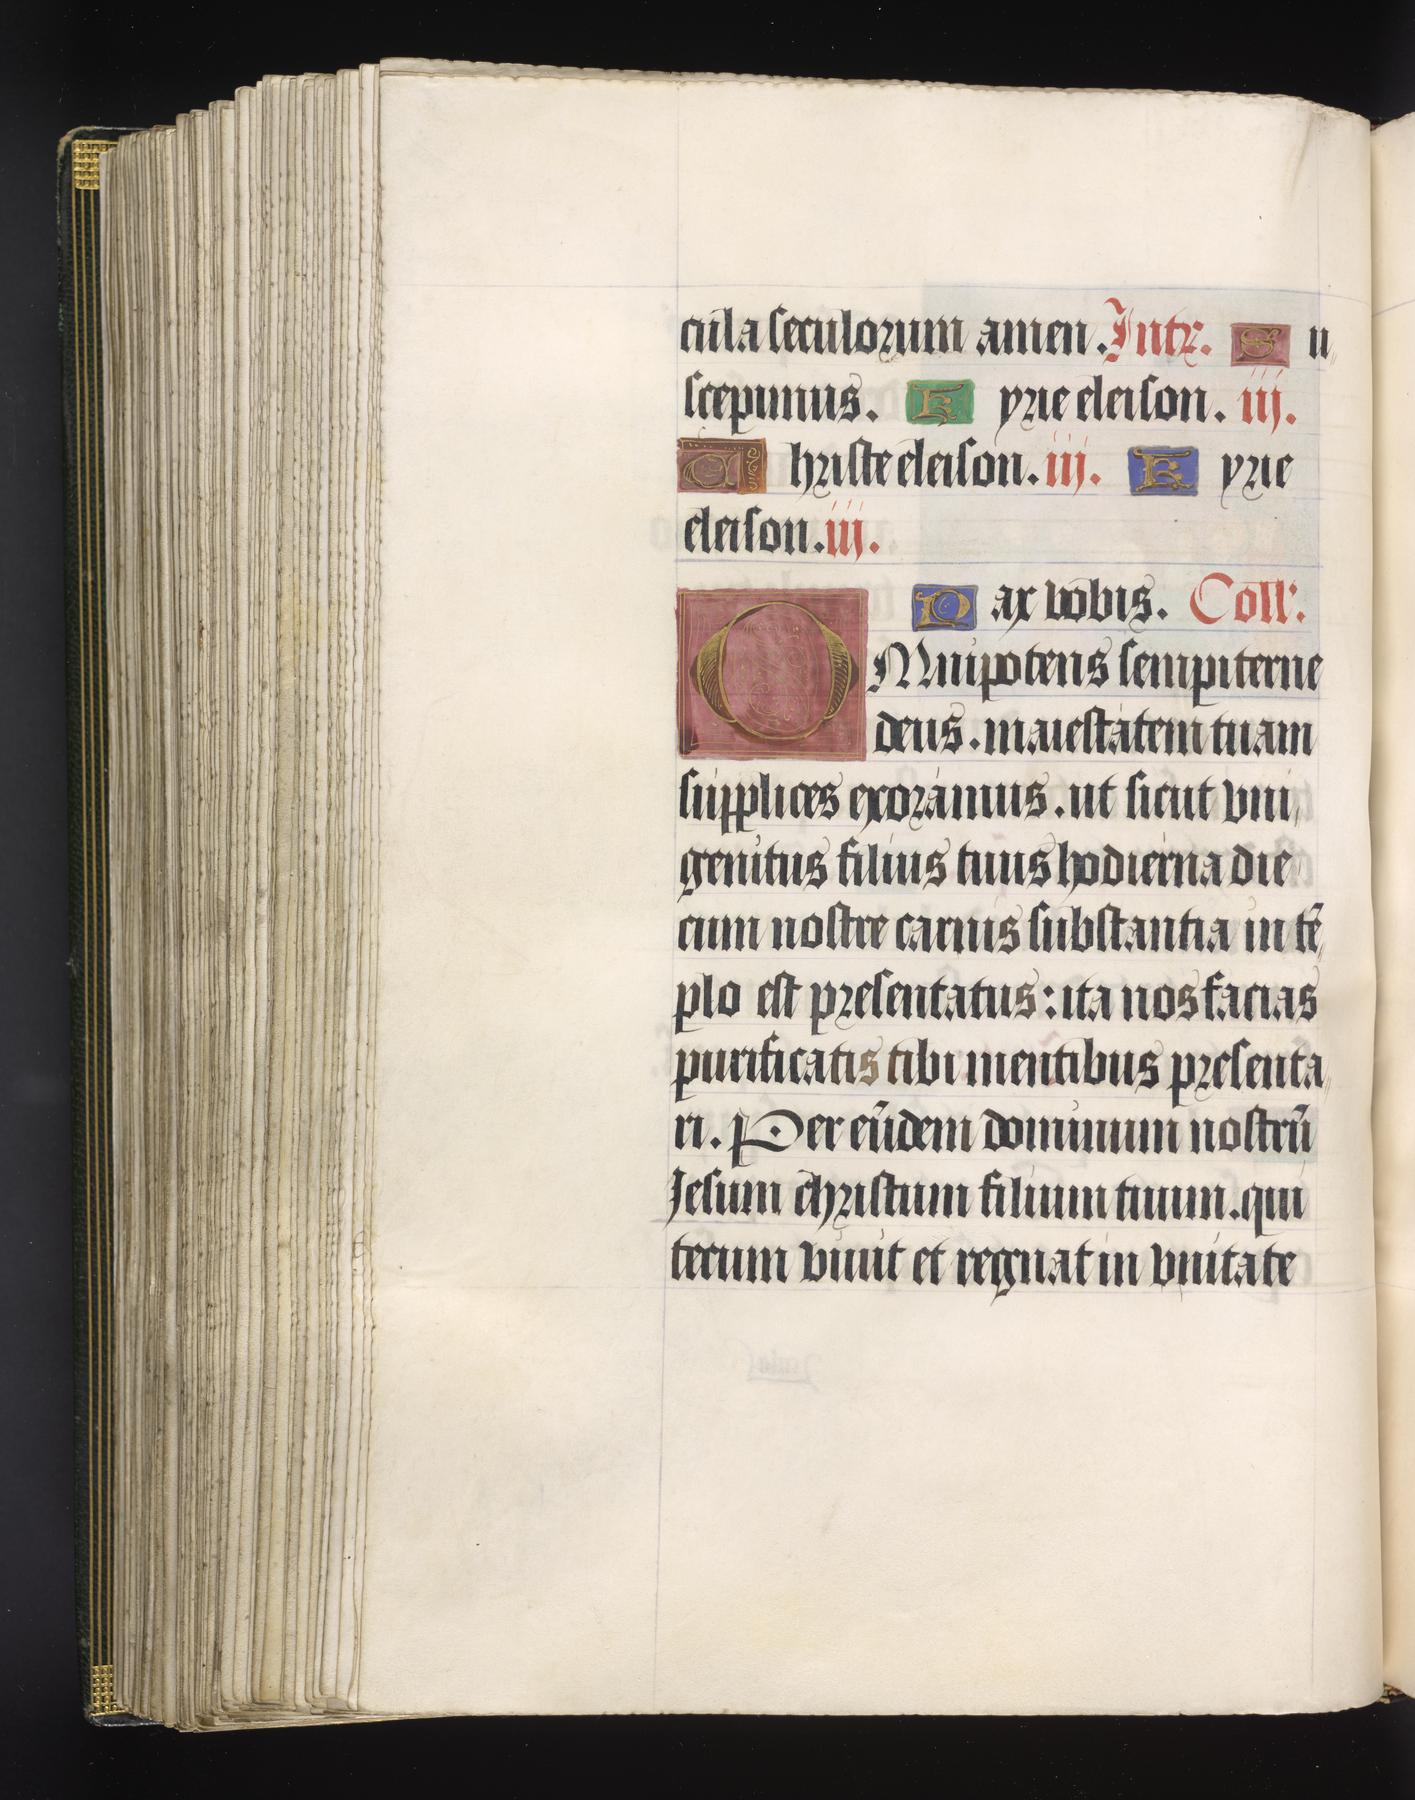 cula seculorum amen. Intr. Su
scepimus. Kyrie eleison. iij.
Christe eleison. iij. Kyrie
eleison. iij.
Pax vobis. Coll'.
OMnipotens sempiterne
deus. maiestatem tuam
supplices exoramus. ut sicut vni
genitus filius tuus hodierna die
cum nostre carnis substantia in tē
plo est presentatus: ita nos facias
purificatis tibi mentibus presenta
ri. Per eūdem dominum nostrū
Jesum christum filium tuum. qui
tecum viuit et regnat in vnitate